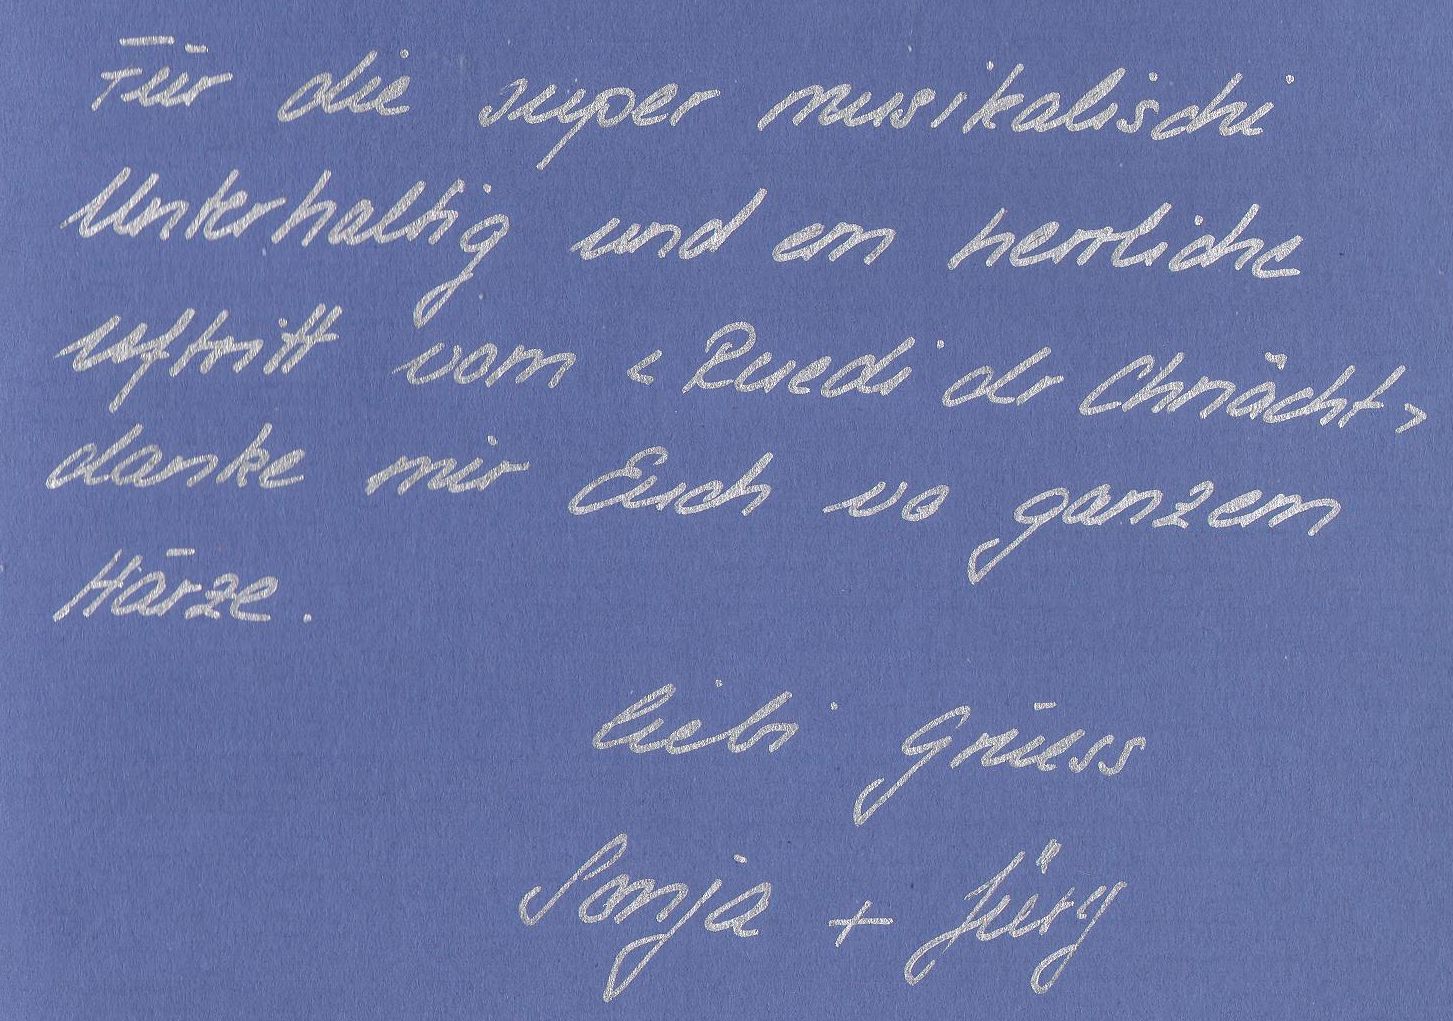 Für die super musikalischi
Unterhaltig und em herrliche
Uftritt vom <Ruedi dr Chnächt>
danke mir Euch vo ganzem
Härze.
liebi Grüess
Sonja + Jürg